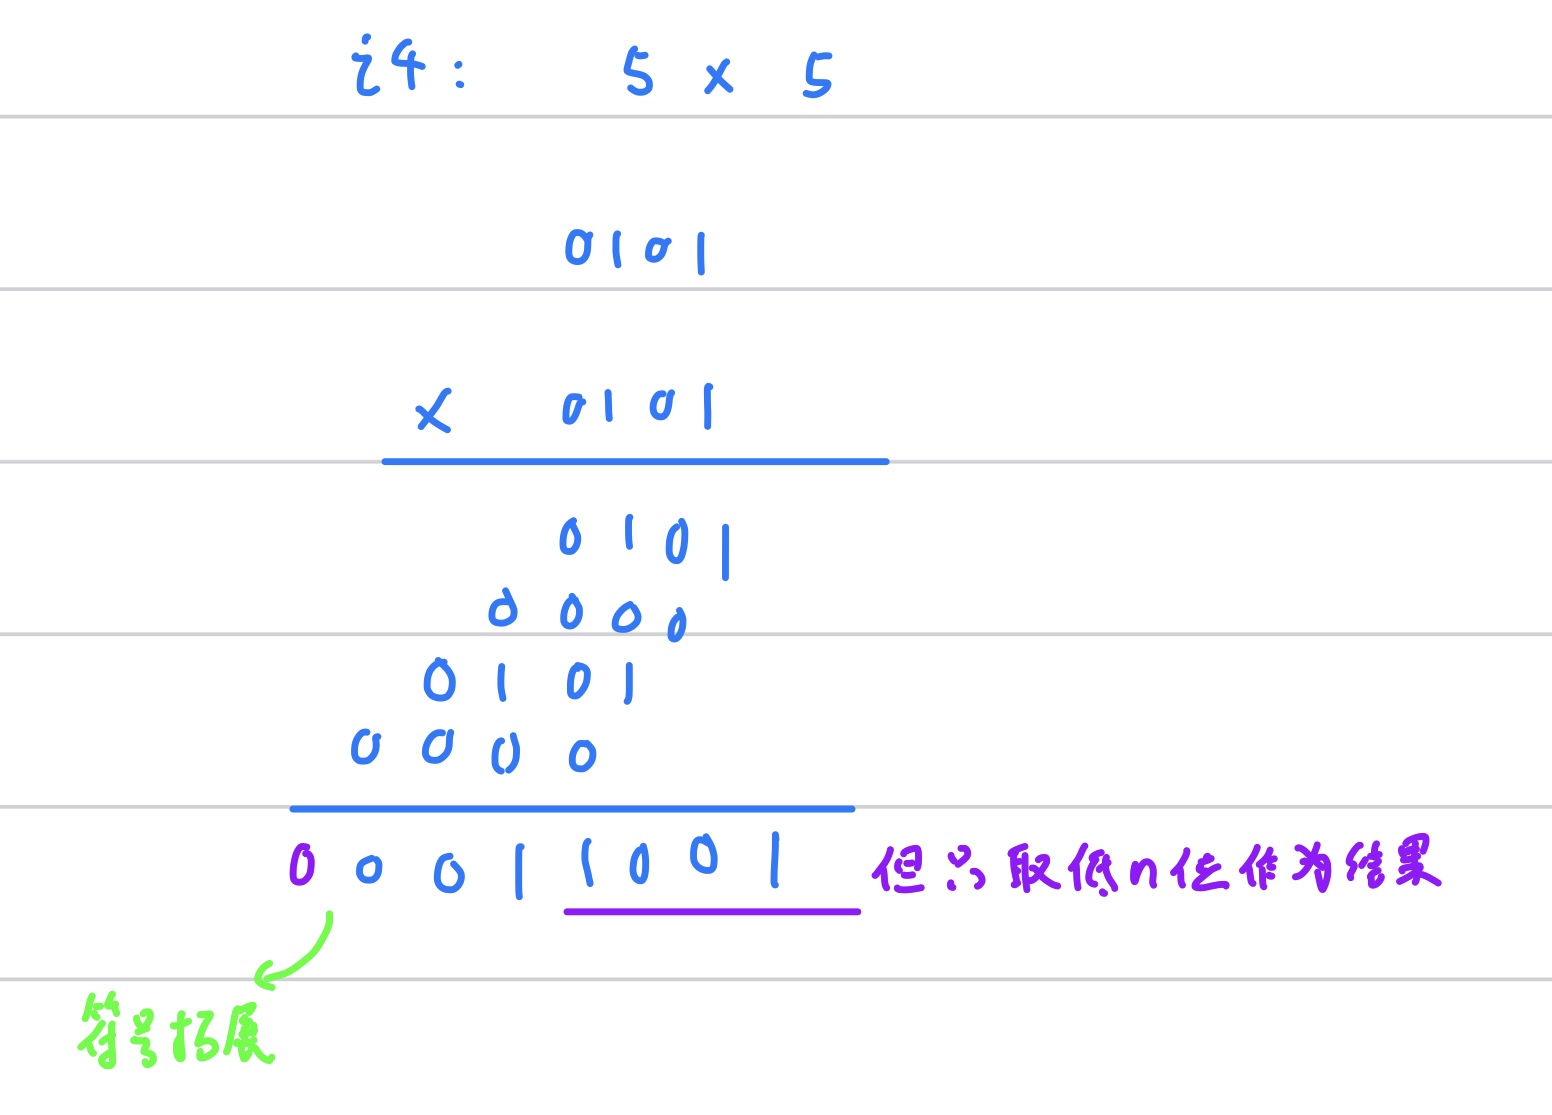 i4: 5 x 5
0101
x 0101
0101
0000
0101
0000
00011001 但只取低n位作为结果
符号拓展